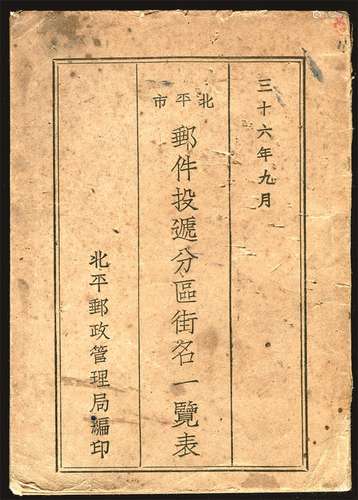 三十六年九月
北平市
郵件投遞分區街名一覽表
北平郵政管理局編印